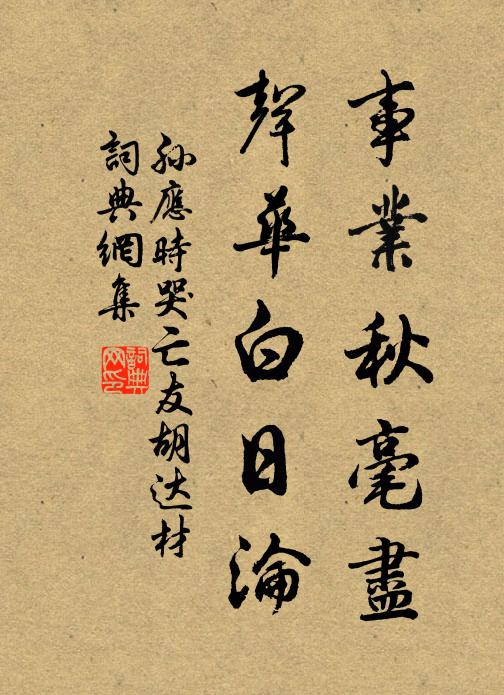 事業秋毫盡
聲華白日淪
孫應時哭亡友胡达材
詞典網集
詞典
网印